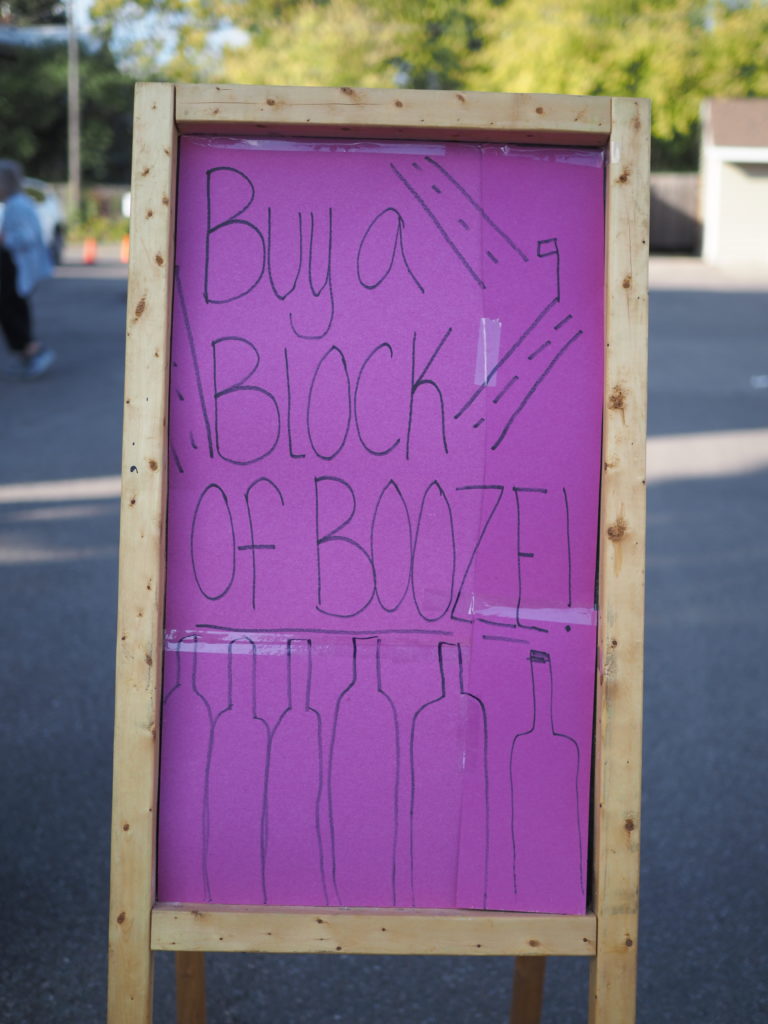 Buy a
BLOCK
Of BOOZE!